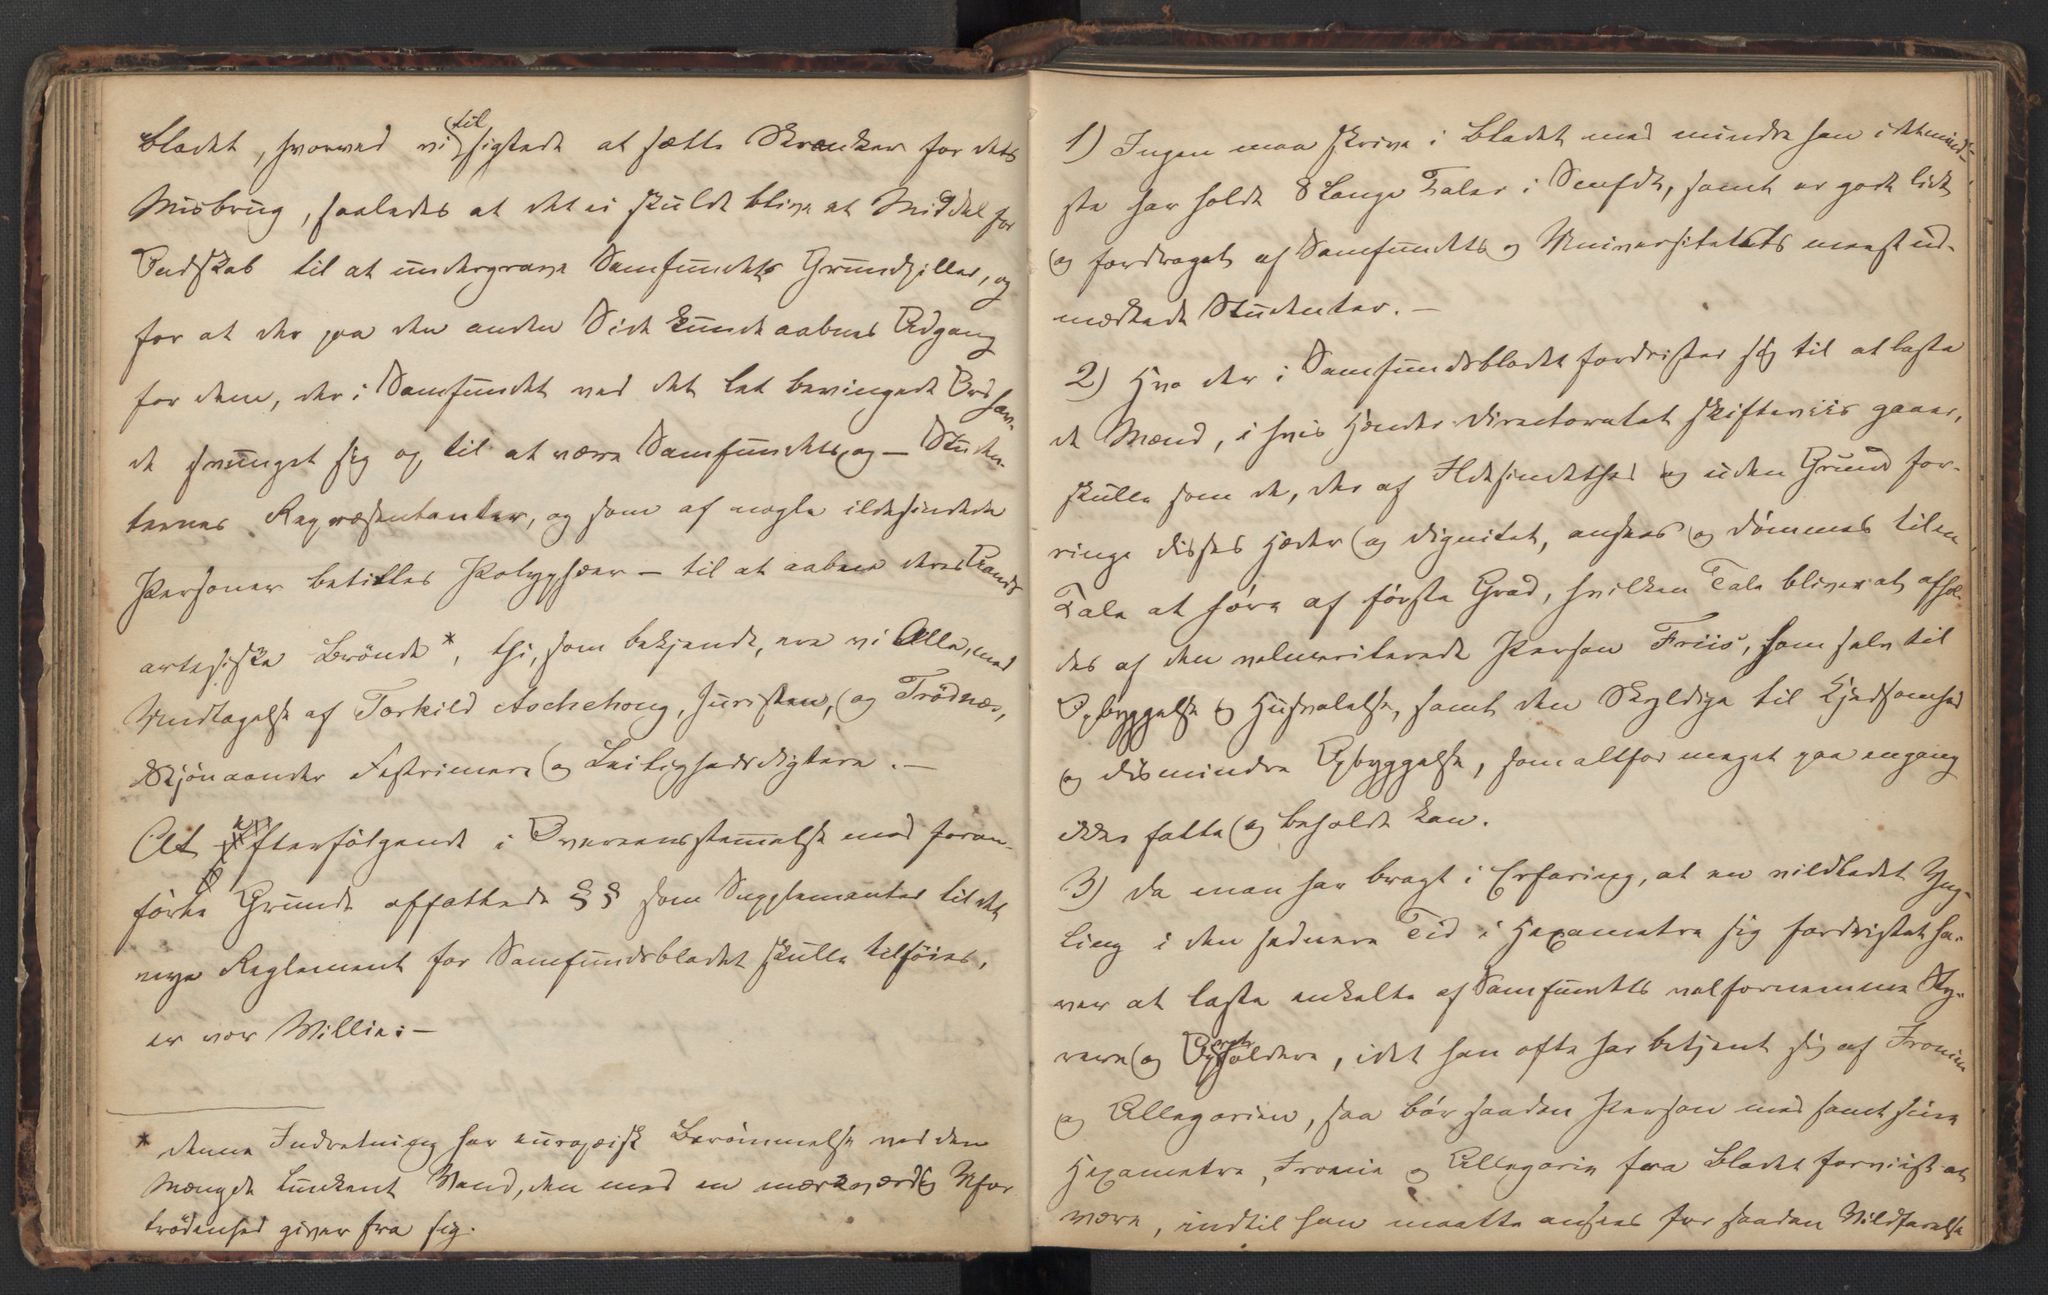 Bladet, hvorved vi tilsigtede at sætte Skranker for dets
Misbrug, saaledes at det ei skulde blive et Middel for
Ondskab til at undergrave Samfundets Grundpiller, og
for at der paa den anden Side kunde aabnes Adgang
for dem, der i Samfundet ved det let bevingede Ord hav-
de svunget sig op til at være Samfundets og – Studen-
ternes Repræsentanter, og som af nogle ildesindede
Personer betitles Polypheer – til at aabne deres Aands
artesiske Brönde*, thi, som bekjendt, ere vi Alle, med
Undtagelse af Torkild Aschehoug, Juristen, og Trödnæs,
Skjönaander Festrimere og Leilighedsdigtere. –
At Efterfölgende i Overensstemelse med foran-
förte Grunde affattede §§ som Supplementer til det
nye Reglement for Samfundsbladet skulle tilföies,
er vor Villie: –
* Denne Indretning har europæisk Berömmelse ved den
Mængde lunkent Vand, den med en mærkværdig Ufor
trödenhed giver fra sig.
1) Ingen maa skrive i Bladet med mindre han i det mind-
ste har holdt 8 lange Taler i Samfdt, samt er godt lidt
og fordraget af Samfundets og Universitetets meest ud-
mærkede Studenter. –
2) Hvo der i Samfundsbladet fordrister sig til at laste
de Mænd, i hvis Hænder Directoratet skifteviis gaaer,
skulle som de, der af Ildesindethed og uden Grund for-
ringe disses Hæder og Dignitet, ansees og dömmes til en
Tale at höre af förste Grad, hvilken Tale bliver at afhol-
des af den velmeriterede Person Friis, ham selv til
Opbyggelse og Husvalelse, samt den Skyldige til Kjedsomhed
og dismindre Opbyggelse, som altfor meget paa engang
ikke fatte og beholde kan.
3) Da man har bragt i Erfaring, at en vildledet Yng-
ling i den sednere Tid i Hexametre sig fordristet ha-
ver at laste enkelte af Samfundets velfornemme Sty-
rere og Opretholdere, idet han ofte har betjent sig af Ironien
og Allegorien, saa bör saadan Person med samt sine
Hexametre, Ironie og Allegorie fra Bladet forviist at
være, indtil han maatte ansees for saadan Vildfarelse